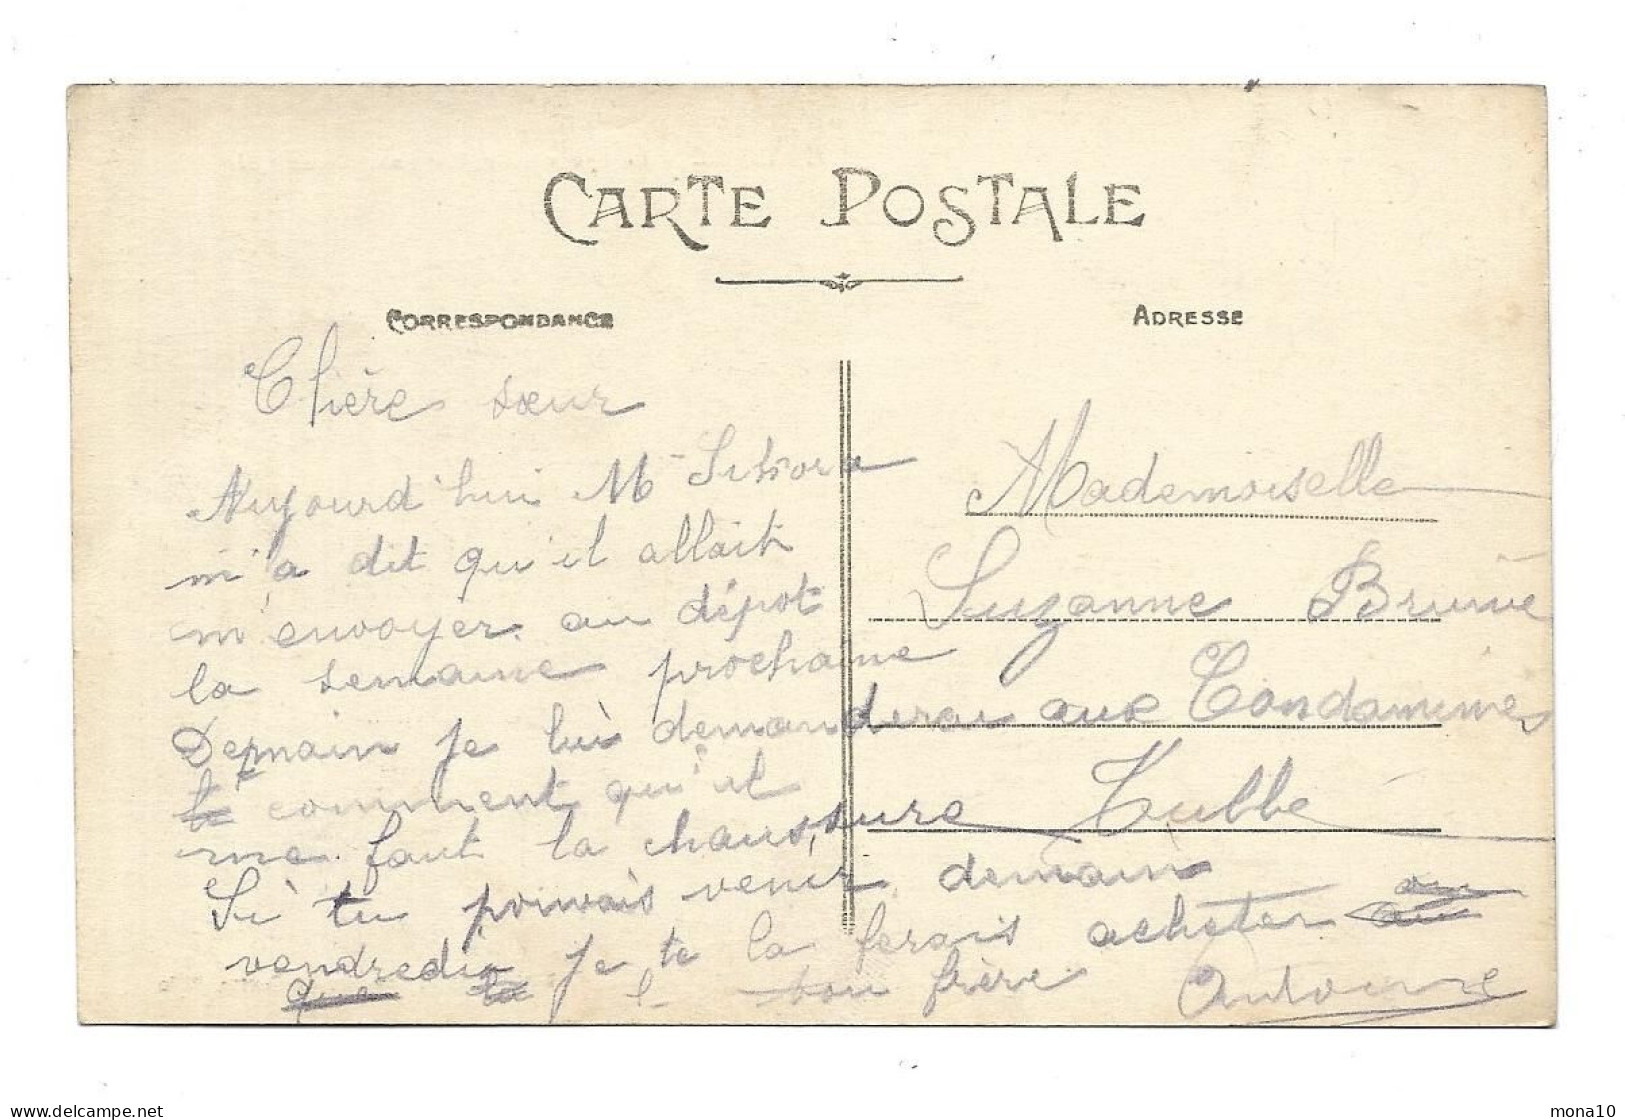 CARTE POSTALE
CORRESPONDANCE
ADRESSE
Chère sœur
Aujourd'hui M
m'a dit qu'il allait
m'envoyer au dépot
la semaine prochaine
Demain je lui demanderai
comment qu'il
me faut la chaussure
Si tu pouvais venir demain
vendredi je te la ferais acheter
ton frère Antoine
Mademoiselle
Suzanne
aux Condamines
Tulle
mona10